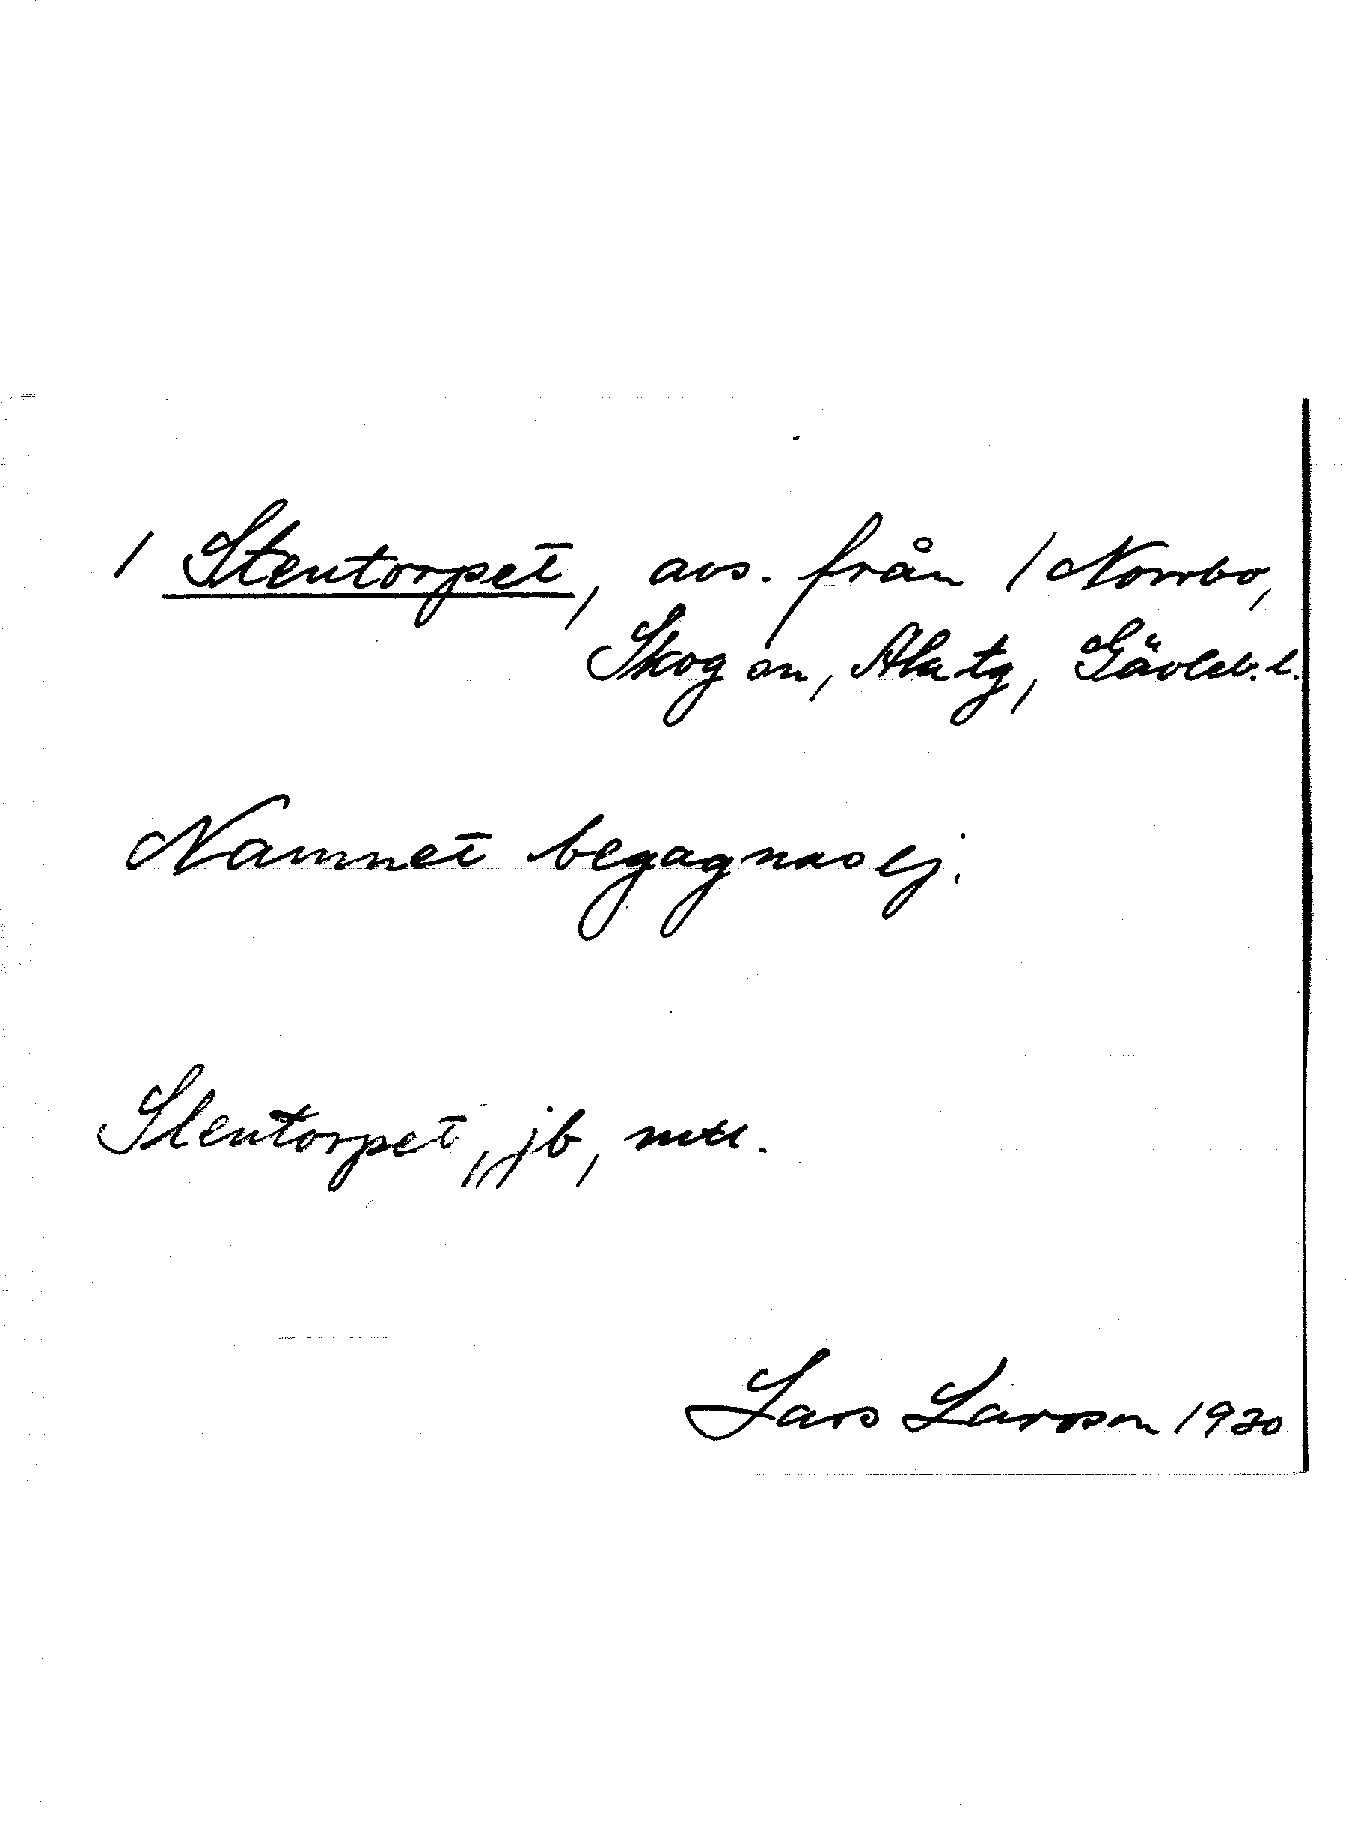 1 Stentorpet, avs. från 1 Norrbo,
Skog sn, Ala tg, Gävleb. l.
Namnet begagnas ej.
Stentorpet, jb,
Lars Larsson 1930